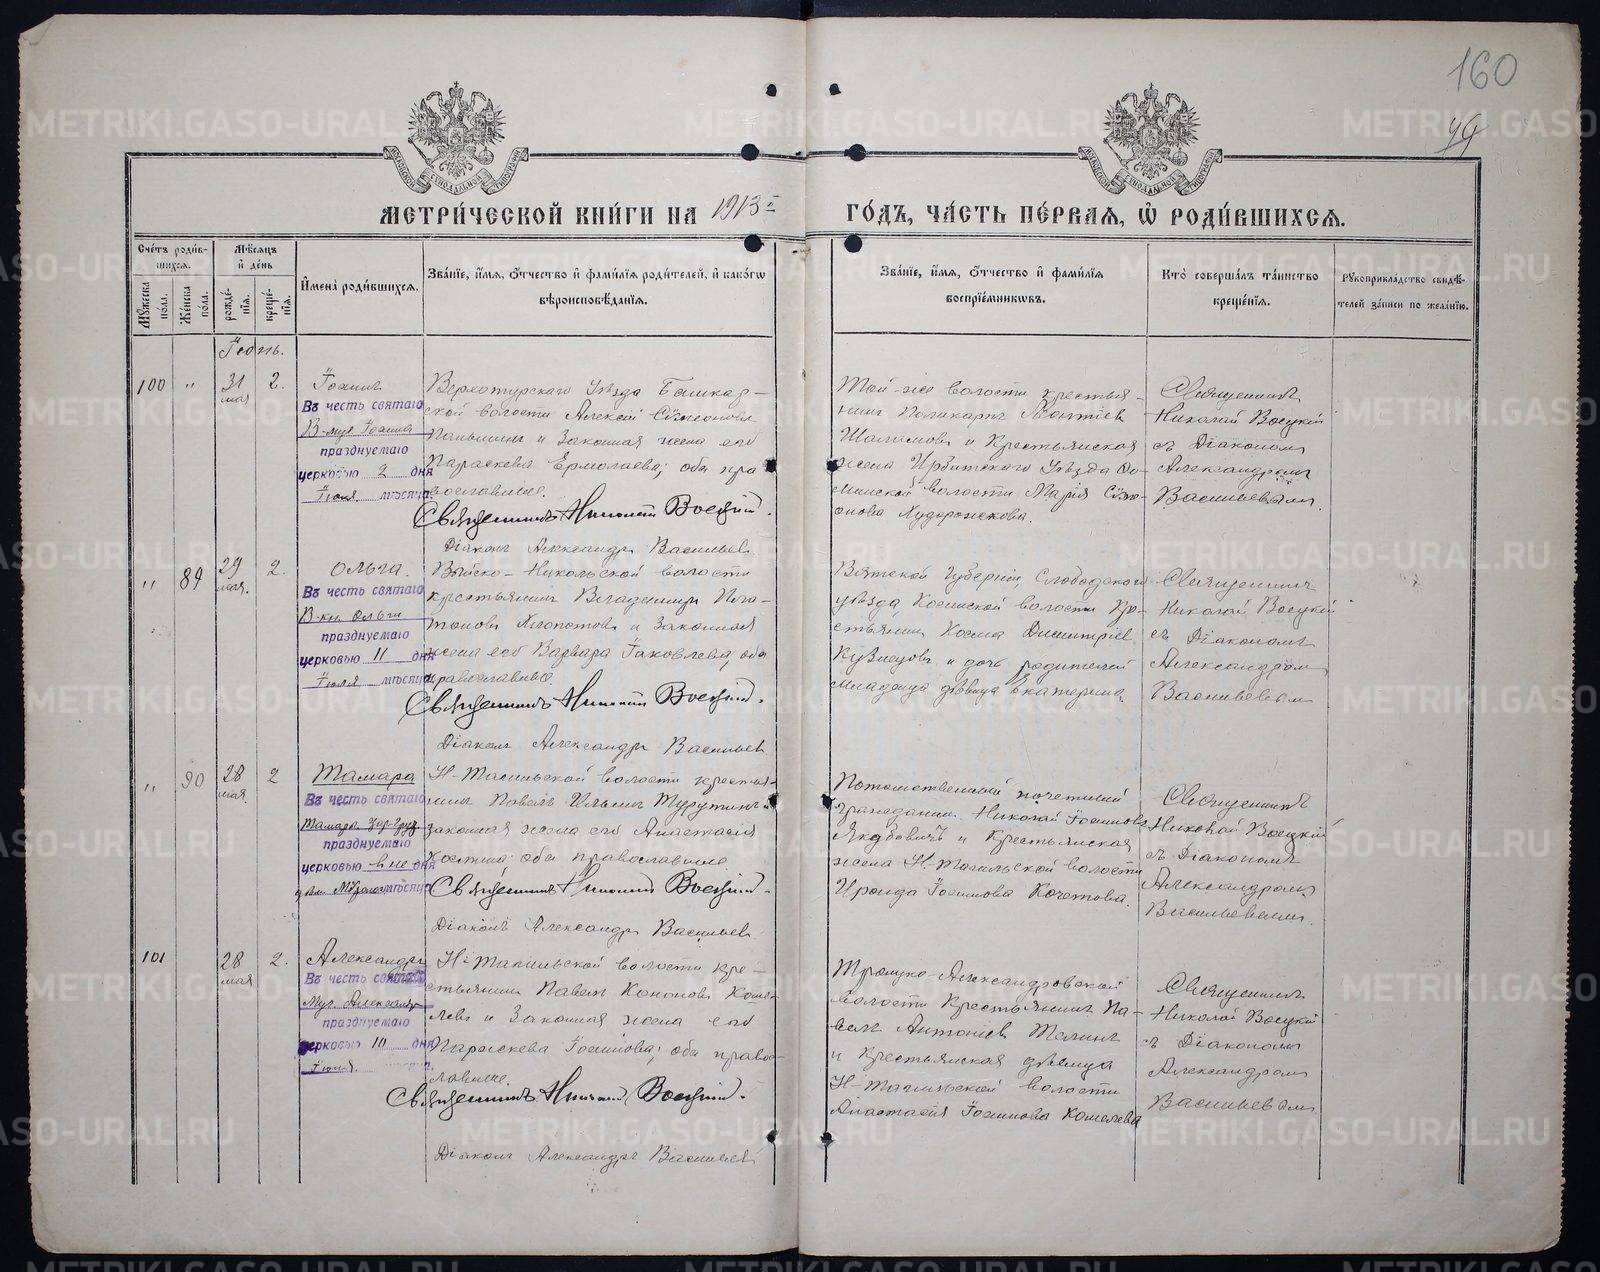 160
79
МОСКОВСКОЙ СѴНОДАЛЬНОЙ ТИПОГРАФІИ
МОСКОВСКОЙ СѴНОДАЛЬНОЙ ТИПОГРАФІИ
МЕТРИ́ЧЕСКОЙ КНИ́ГИ НА 1913 ГО́ДЪ, ЧА́СТЬ ПЕ́РВАЯ, Ѡ҆ РОДИ́ВШИХСЯ.
Сче́тъ роди́вшихся.
Мꙋ́жеска по́ла.
Же́нска по́ла.
Мѣ́сяцъ и҆ де́нь
рожде́нїя.
креще́нїя.
И҆мена̀ роди́вшихся.
Зва́нїе, и҆́мя, ѻ҆́тчество и҆ фами́лїя роди́телей, и҆ како́гѡ
вѣроисповѣ́данїя.
Зва́нїе, и҆́мя, ѻ҆́тчество и҆ фами́лїя
воспрїе́мникѡвъ.
Кто̀ соверша́лъ та́инство
креще́нїя.
Рꙋкоприкла́дство свидѣ́-
телей за́писи по жела́нїю.
Іюнь.
100 " 31 мая 2.
Іоаннъ
Въ честь святаго
В-муч Іоанна
празднуемаго
церковью 2 дня
Іюня мѣсяца
Верхотурскаго Уѣзда
ской волости Алексѣй Сѵмеоновъ
и Законная жена его
Параскева Ермолаева; оба пра
вославные.
Священникъ Николай Воецкій.
Діаконъ Александръ Васильевъ
Той-же волости крестья-
нинъ Поликарпъ
и Крестьянская
жена Ирбитскаго Уѣзда
волости Марія Сѵме-
онова Худорожкова.
Священникъ
Николай Воецкій
съ Діакономъ
Александромъ
Васильевымъ.
" 89 29 мая. 2.
Ольга.
Въ честь святаго
В-кн. Ольги
празднуемаго
церковью 11 дня
Іюля мѣсяца
Николькой волости
крестьянинъ Владиміръ
и Законная
жена его Варвара Іаковлева, оба
православные.
Священникъ Николай Воецкій.
Діаконъ Александръ Васильевъ
Вятской Губерніи, Слободскаго
уѣзда, волости Кре-
стьянинъ Косма Димитріев
Кузнецовъ и дочь родителей
младенца дѣвица Екатерина.
Священникъ
Николай Воецкій
съ Діакономъ
Александромъ
Васильевымъ
" 90 28 мая. 2
Тамара
Въ честь святаго
Тамары Цар-Груз
празднуемаго
церковью дня
мѣсяца
Н-Тагильской волости крестья-
нинъ Павелъ Ильинъ
законная жена его Анастасія
оба православные
Священникъ Николай Воецкій.
Діаконъ Александръ Васильевъ
Потомственный почетный
гражданинъ Николай Іосифовъ
Якубовичъ и Крестьянская
жена Н-Тагильской волости
Ираида Іосифова Кочетова.
Священникъ
Николай Воецкій
съ Діакономъ
Александромъ
Васильевымъ.
101 28 мая 2.
Александръ
Въ честь святаго
Муч. Александр
празднуемаго
церковью 10 дня
Іюня.
Н-Тагильской волости кре-
стьянинъ Павелъ Кононовъ Коше-
левъ и Законная жена его
Параскева Іосифова; оба право-
славные.
Священникъ Николай Воецкій.
Діаконъ Александръ Васильевъ
Троицко-Александровской
волости Крестьянинъ Па-
велъ Антоніев
и Крестьянская дѣвица
Н-Тагильской волости
Анастасія Іосифова Кошелева
Священникъ
Николай Воецкій
съ Діакономъ
Александромъ
Васильевымъ
METRIKI.GASO-URAL.RU